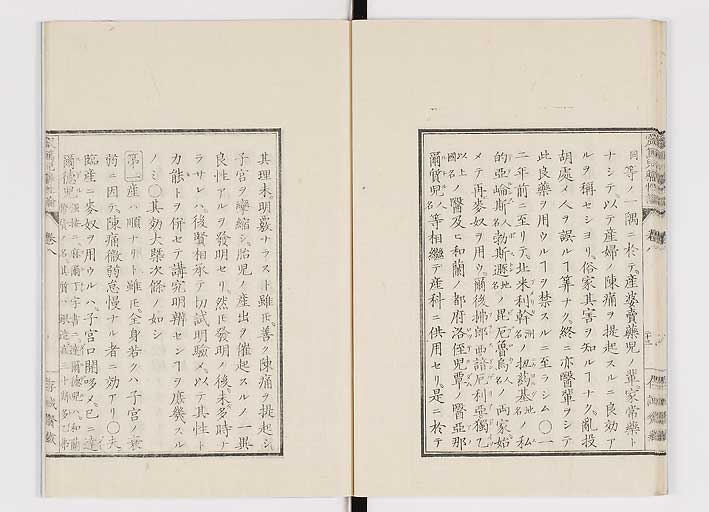 同等ノ一隅ニ於テ產婆賣藥兒ノ輩家常藥ト
ナシテ以テ產婦ノ陳痛ヲ提起スルニ良効ア
ルヲ稱セシヨリ俗家其害ヲ知ルヿナク亂投
胡處メ人ヲ誤ルヿ算ナク終ニ亦醫輩ヲシテ
此良藥ヲ用ウルヿヲ禁スルニ至ラシム〇一
二年前ニ至リテ北米利幹洲ノ紐葯基地名ノ私
的亞喻斯人名勃斯遜地名ノ毘尼魯烏人名ノ兩家始
メテ再麥奴ヲ用ウ爾後拂郎西諳厄利亞獨乙
以上國名ノ醫及ヒ和蘭ノ都府洛侄兒覃ノ醫亞那
爾貲兒人名等相繼テ產科ニ供用セリ是ニ於テ
其理未明覈ナラスト雖𪜈善ク陳痛ヲ提起シ
子宮ヲ攣縮シ胎兒ノ產出ヲ催起スルノ一異
良性アルヲ發明セリ然𪜈發明ノ後未多時ナ
ラサレハ後賢相承テ切試明驗メ以テ其性ト
力能トヲ併セテ講究明辨センヿヲ庶糞スル
ノミ〇其効大槩次條ノ如シ
第一產ハ順ナリト雖𪜈全身若クハ子宮ノ衰
弱ニ因テ陳痛微弱怠慢ナル者ニ効アリ〇夫
臨產ニ麥奴ヲ用ウルハ子宮口開哆メ已ニ達
卷八